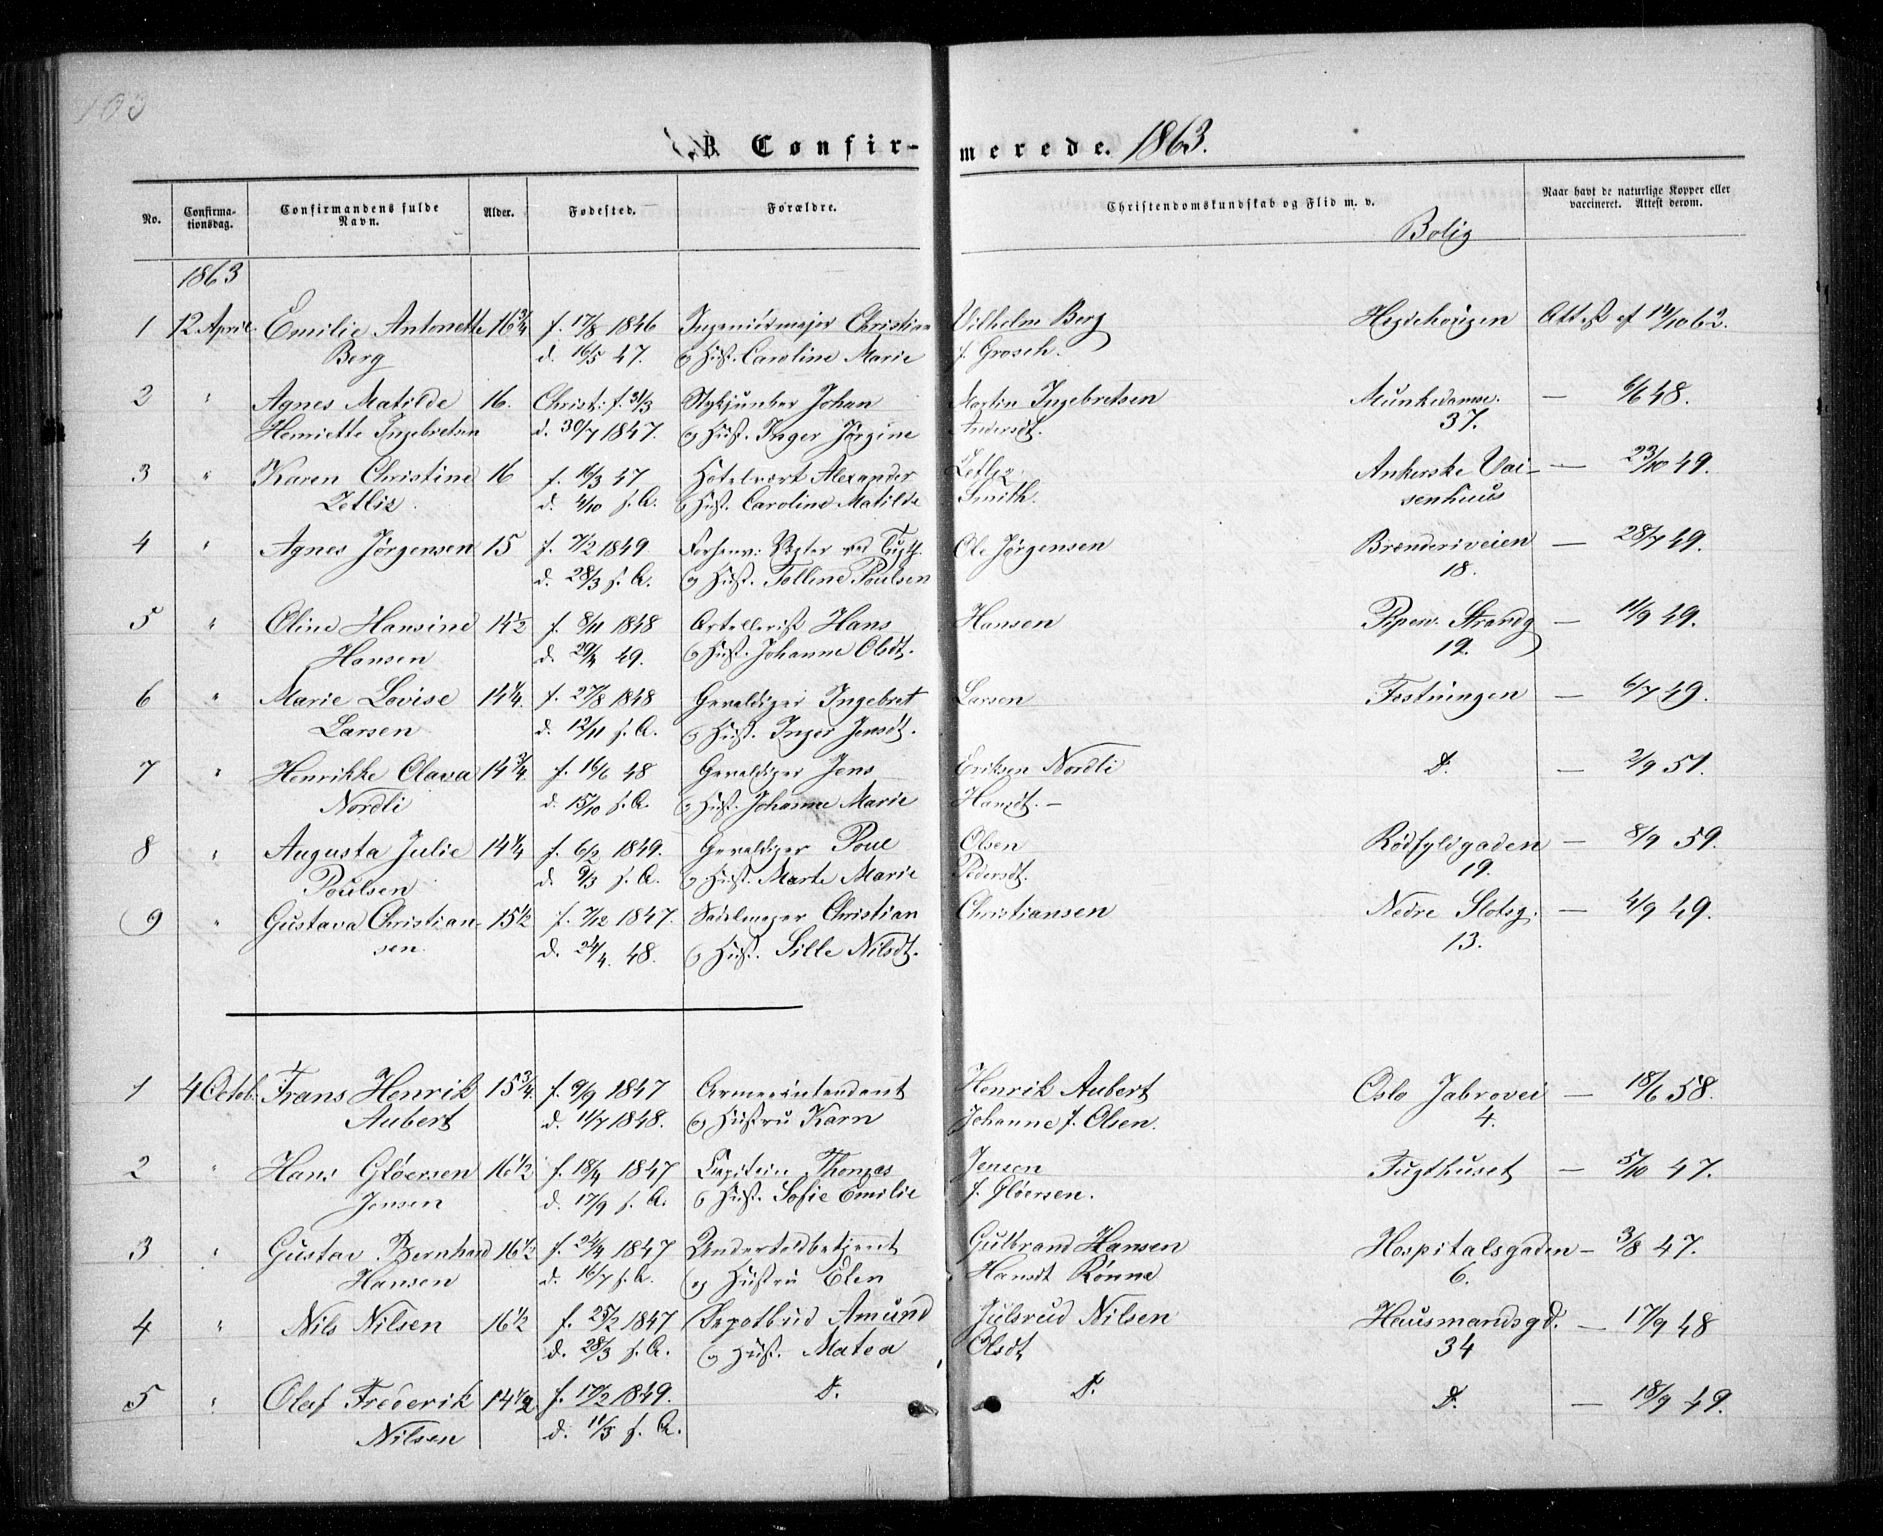 103
B. Confirmerede. 1863.
No. Confirmationsdag. Confirmandens fulde Navn. Alder. Fødested. Forældre. Christendomskundskab og Flid m. v. Bolig Naar havt de naturlige Kopper eller vaccineret. Attest derom.
1863
1 12 April. Emilie Antonette 16 3/4 f. 17/8 1846 Ingeniérmajor Christian Vilhelm Berg Hegdehougen Attest af 14/10 62.
Berg d. 16/5 47. og Hust. Caroline Marie f. Grosch.
2 " Agnes Matilde 16. Christ: f. 31/3 Stykjunker Johan Martin Ingebretsen Munkedamsv. — 6/6 48.
Henriette Ingebretsen d. 30/7 1847. og Hust. Inger Jørgine Andersdt. 37.
3 " Karen Christine 16 f. 16/3 47 Hotelvært Alexander Zetliz Ankerske Vai- — 23/10 49.
Zetliz d. 4/10 s. A. og Hust. Caroline Matilde Smith. senhuus
4 " Agnes Jørgensen 15 f. 7/2 1849 Forhenv: Vogter ved Tugth. Ole Jørgensen Brænderiveien — 28/7 49.
d. 28/3 s. A. og Hust. Talline Poulsen 18.
5 " Oline Hansine 14 1/2 f. 8/11 1848 Artellerist Hans Hansen Piperv. Strandg — 11/9 49.
Hansen d. 29/4 49. og Hust. Johanne Olsdt. 12.
6 " Marie Lovise 14 1/4. f. 27/8 1848 Gevaldiger Ingebret Larsen Festningen — 6/7 49.
Larsen d. 12/11 s. A. og Hust. Inger Jensdt.
7 " Henrikke Olava 14 3/4. f. 16/6 48 Gevaldiger Jens Eriksen Nordli D. — 2/9 51.
Nordli d. 15/10 s. A. og Hust. Johanne Marie Hansdt. —
8 " Augusta Julie 14 1/4 f. 6/2 1849. Gevaldiger Poul Olsen Rødfyldgaden — 8/9 59.
Poulsen d. 9/3 s. A. og Hust. Marte Marie Pedersdt. 19.
9 " Gustava Christian- 15 1/2 f. 7/12 1847. Sadelmager Christian Christiansen Nedre Slotsg. — 4/9 49.
sen. d. 24/4. 48. og Hust. Sille Nilsdt. 13.
1 4 Octob. Frans Henrik 15 3/4. f. 9/9 1847 Armeeintendant Henrik Aubert Oslo Jabrovei — 18/6 58.
Aubert d. 11/7 1848. og Hustru Karn Johanne f. Olsen. 4.
2 " Hans Gløersen 16 1/2 f. 18/4 1847 Capitein Thomas Jensen Tugthuset — 5/10 47.
Jensen d. 17/9 s. A. og Hust. Sofie Emilie f. Gløersen.
3 " Gustav Bernhard 16 1/2 f. 24/4 1847 Undertoldbetjent Gulbrand Hansen Hospitalsgaden — 3/8 47.
Hansen d. 16/7 s. A. og Hustru Elen Hansdt Rønne 6.
4 " Nils Nilsen 16 1/2 f. 25/2 1847 Depotbud Amund Julsrud Nilsen Hausmandsgd. — 17/9 48
d. 28/3 s. A. og Hust. Matea Olsdt 34
5 " Olaf Frederik 14 1/2 f. 17/2 1849. D. D. D. — 18/9 49.
Nilsen d. 11/3 s. A.